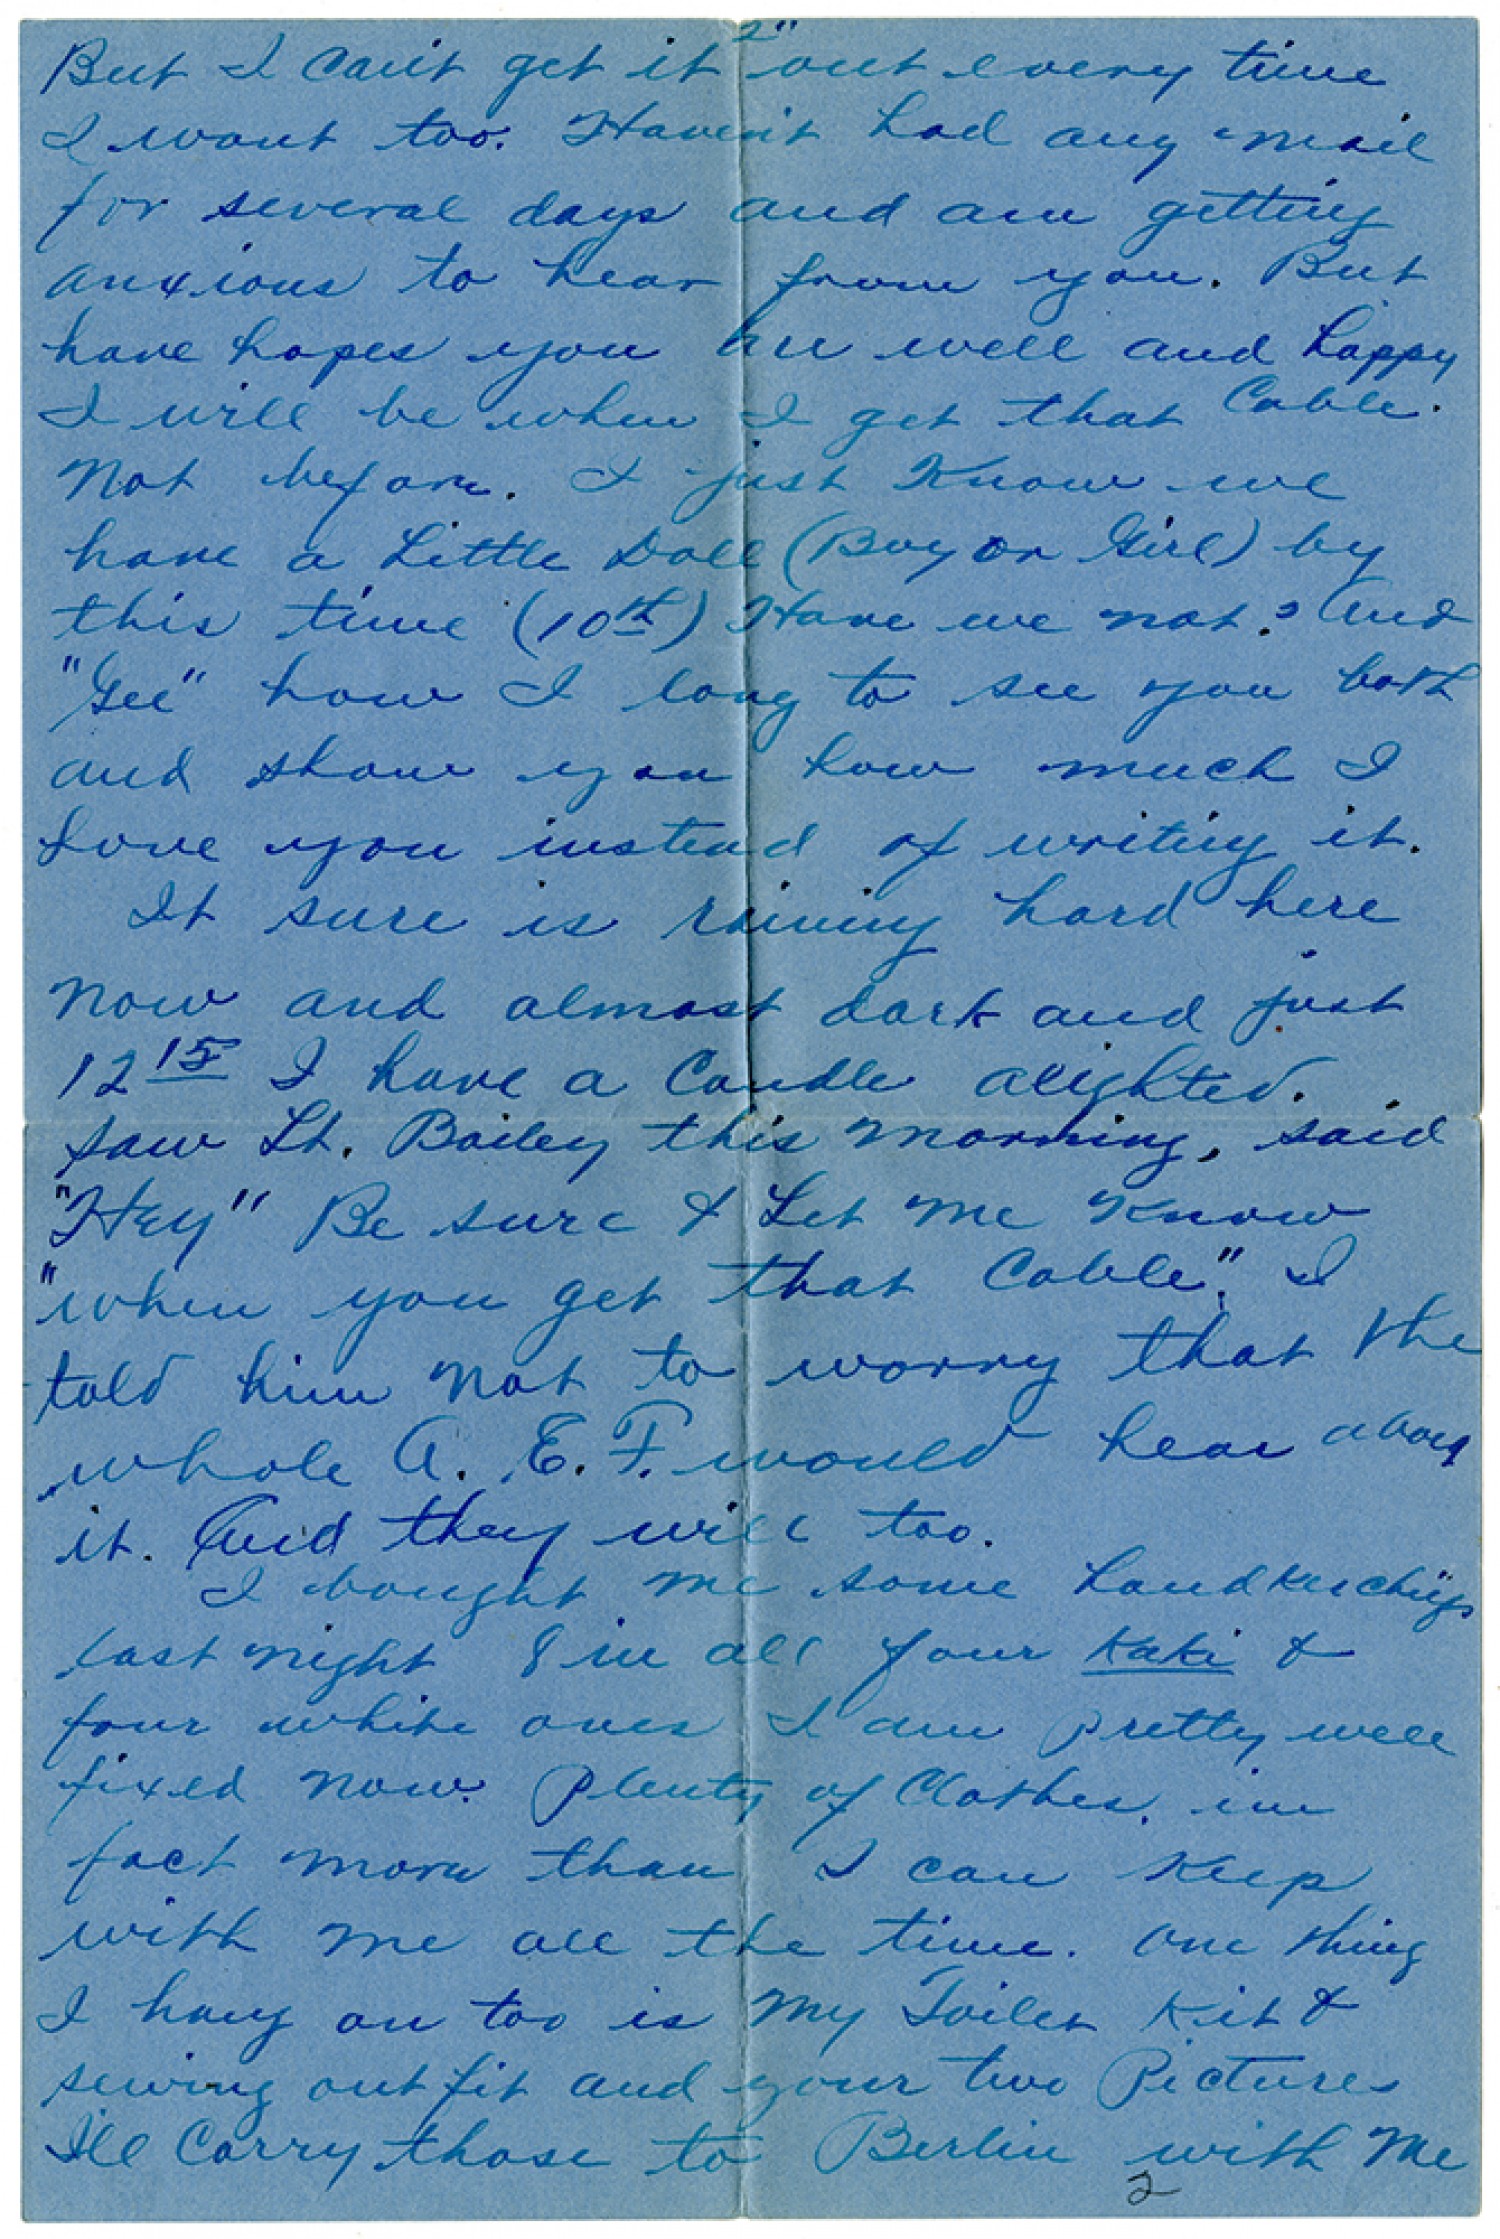 2"
But I can't get it out every time
I want too. Haven't had any mail
for several days and am getting
anxious to hear from you. But
have hopes you are well and happy
I will be when I get that Cable.
Not before. I just Know we
have a Little Doll (Boy or Girl) by
this time (10th) Have we not? And
"Gee" how I long to see you both
and show you how much I
love you instead of writing it.
It sure is raining hard here
now and almost dark and just
12 15 I have a Candle alighted.
saw Lt. Bailey this morning, said
"Hey" Be sure & Let me Know
"when you get that Cable". I
told him not to worry that the
whole A. E. F. would hear about
it. And they will too.
I bought me some Handkerchiefs
last night 8 in all four Kaki &
four white ones I am pretty well
fixed now. Plenty of Clothes. in
fact more than I can Keep
with me all the time. One thing
I hang on too is my Toilet Kit &
sewing outfit and your two Pictures
I'll Carry those to Berlin with me
2